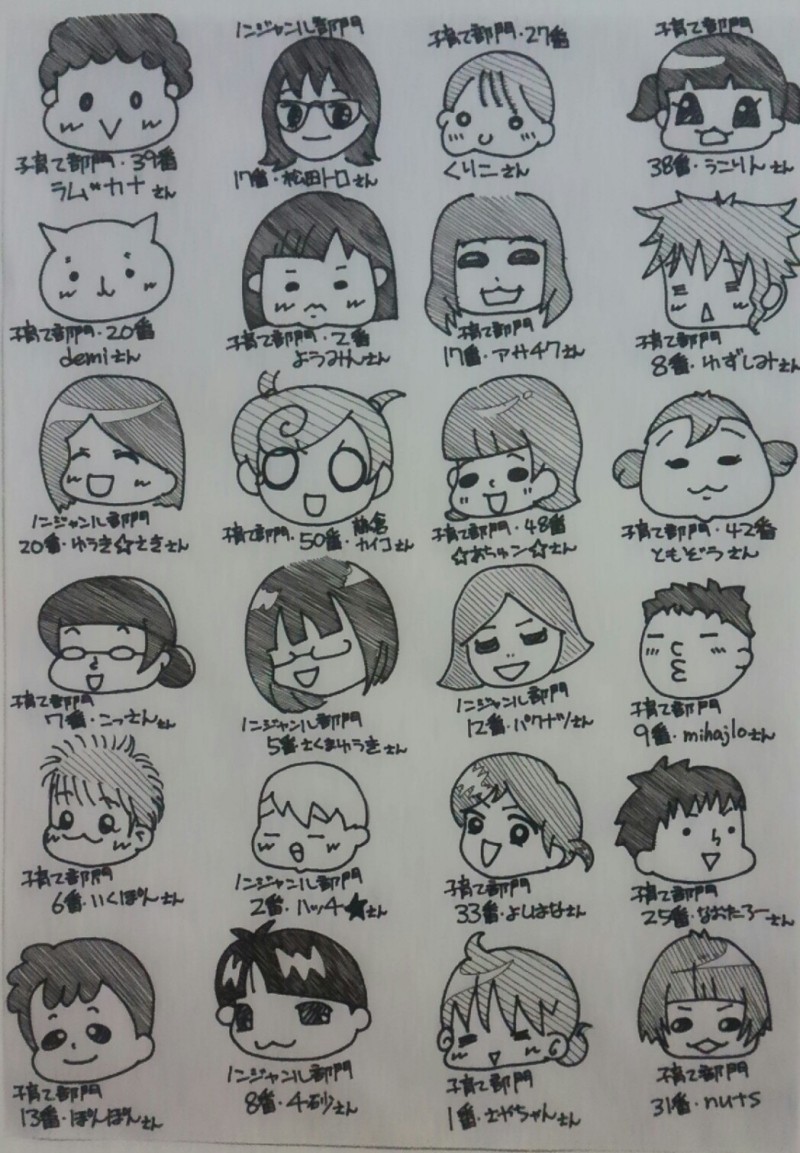 子育て部門・39番
ラム゛カナさん
ノンジャンル部門
17番・松田トロさん
子育て部門・27番
くりこさん
子育て部門
38番・うこりんさん
子育て部門・20番
demiさん
子育て部門・2番
ようみんさん
子育て部門
17番・アサ47さん
子育て部門
8番・ゆずしみさん
ノンジャンル部門
20番・ゆうき☆さきさん
子育て部門・50番・鎌倉カイコさん
子育て部門・48番
☆おちゅン☆さん
子育て部門・42番
ともぞうさん
子育て部門
7番・こっさんさん
ノンジャンル部門
5番・さくまゆうきさん
ノンジャンル部門
12番・パクナツさん
子育て部門
9番・mihajloさん
子育て部門
6番・いくぽんさん
ノンジャンル部門
2番・ハッチ★さん
子育て部門
33番・よしはなさん
子育て部門
25番・なおたろーさん
子育て部門
13番・ぽんぽんさん
ノンジャンル部門
8番・4砂さん
子育て部門
1番・さやちゃんさん
子育て部門
31番・nuts